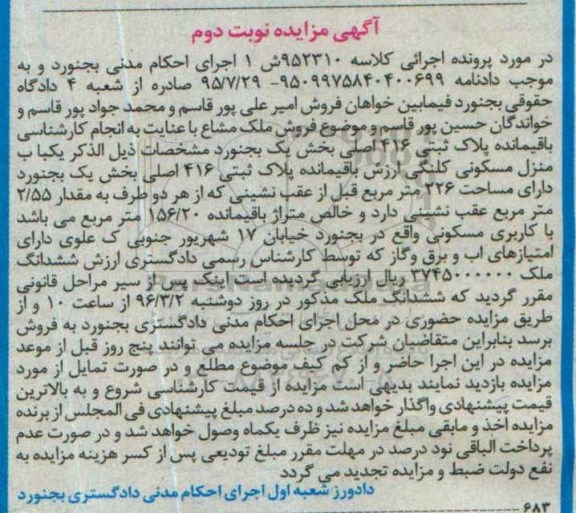 آگهی مزایده نوبت دوم
در مورد پرونده اجرائی کلاسه ۹۵۲۳۱۰ش ۱ اجرای احکام مدنی بجنورد و به
موجب دادنامه ۹۵۰۹۹۷۵۸۴۰۴۰۰۶۹۹- ۹۵/۷/۲۹ صادره از شعبه ۴ دادگاه
حقوقی بجنورد فیمابین خواهان فروش امیر علی پور قاسم و محمد جواد پور قاسم و
خواندگان حسین پور قاسم و موضوع فروش ملک مشاع با عنایت به انجام کارشناسی
باقیمانده پلاک ثبتی ۴۱۶ اصلی بخش یک بجنورد مشخصات ذیل الذکر یکبا ب
منزل مسکونی کلنگی ارزش باقیمانده پلاک ثبتی ۴۱۶ اصلی بخش یک بجنورد
دارای مساحت ۲۲۶ متر مربع قبل از عقب نشینی که از هر دو طرف به مقدار ۲/۵۵
متر مربع عقب نشینی دارد و خالص متراژ باقیمانده ۱۵۶/۲۰ متر مربع می باشد
با کاربری مسکونی واقع در بجنورد خیابان ۱۷ شهریور جنوبی ک علوی دارای
امتیازهای اب و برق وگاز که توسط کارشناس رسمی دادگستری ارزش ششدانگ
ملک ۳۷۴۵۰۰۰۰۰۰ ریال ارزیابی گردیده است اینک پس از سیر مراحل قانونی
مقرر گردید که ششدانگ ملک مذکور در روز دوشنبه ۹۶/۳/۲ از ساعت ۱۰ و از
طریق مزایده حضوری در محل اجرای احکام مدنی دادگستری بجنورد به فروش
برسد بنابراین متقاضیان شرکت در جلسه مزایده می توانند پنج روز قبل از موعد
مزایده در این اجرا حاضر و از کم کیف موضوع مطلع و در صورت تمایل از مورد
مزایده بازدید نمایند بدیهی است مزایده از قیمت کارشناسی شروع و به بالاترین
قیمت پیشنهادی واگذار خواهد شد و ده درصد مبلغ پیشنهادی فی المجلس از برنده
مزایده اخذ و مابقی مبلغ مزایده نیز ظرف یکماه وصول خواهد شد و در صورت عدم
پرداخت الباقی نود درصد در مهلت مقرر مبلغ تودیعی پس از کسر هزینه مزایده به
نفع دولت ضبط و مزایده تجدید می گردد
دادورز شعبه اول اجرای احکام مدنی دادگستری بجنورد
۶۸۳